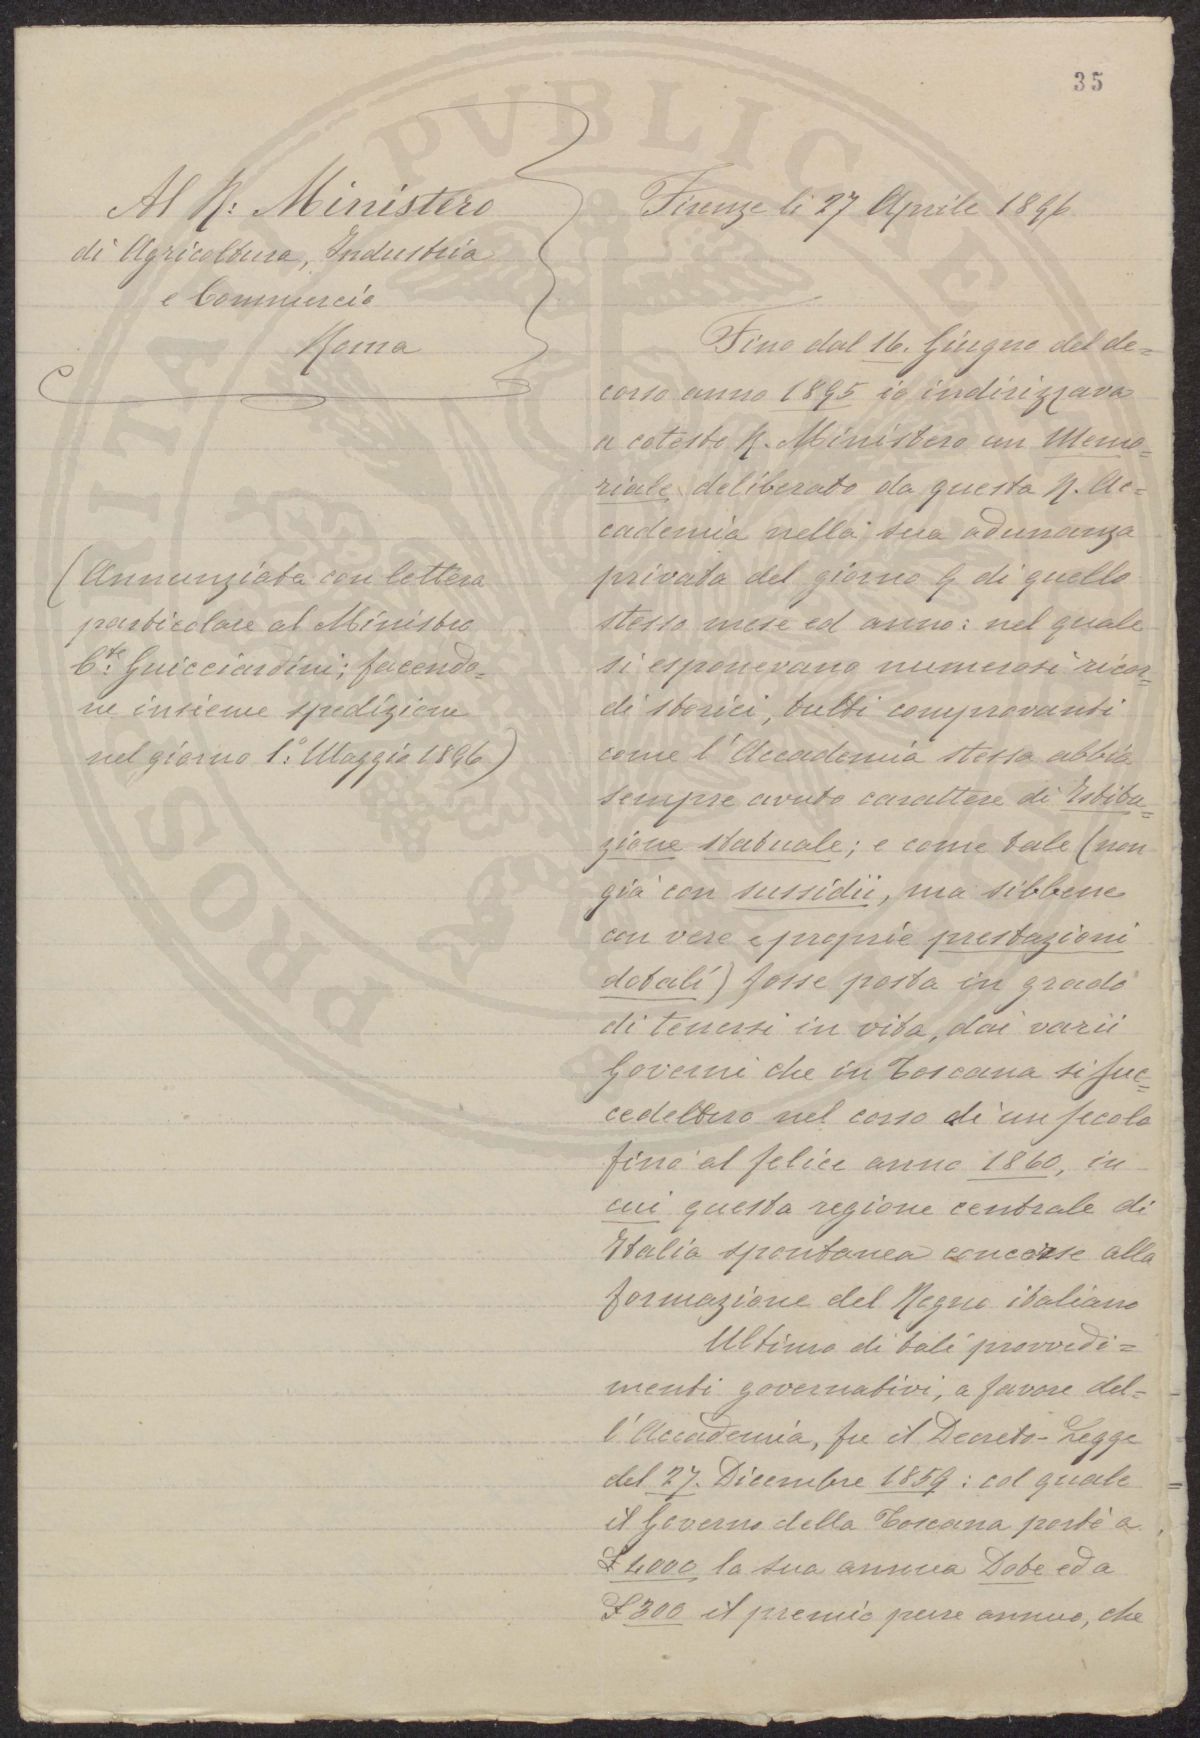 35
Al R: Ministero
di Agricoltura, Industria
e Commercio
Roma
(Annunziata con lettera
particolare al Ministro
Cte: Guicciardini; facendo=
ne insieme spedizione
nel giorno 1.º Maggio 1896)
Firenze li 27 Aprile 1896
Fino dal 16. Giugno del de=
corso anno 1895 io indirizzava
a cotesto R. Ministero un Memo=
riale deliberato da questa R. Ac=
cademia nella sua adunanza
privata del giorno 9 di quello
stesso mese ed anno: nel quale
si esponevano numerosi ricor=
di storici, tutti comprovanti
come l'Accademia stessa abbia
sempre avuto carattere di Istitu=
zione statuale; e come tale (non
già con sussidii, ma sibbene
con vere e proprie prestazioni
dotali) fosse posta in grado
di tenersi in vita, dai varii
Governi che in Toscana si suc=
cedettero nel corso di un secolo
fino al felice anno 1860, in
cui questa regione centrale di
Italia spontanea concorse alla
formazione del Regno italiano
Ultimo di tali provvedi=
menti governativi, a favore del=
l'Accademia, fu il Decreto-Legge
del 27. Dicembre 1859: col quale
il Governo della Toscana portò a
£ 4000 la sua annua Dote ed a
£ 300 il premio pure annuo, che
PROSPERITATI PVBLICAE